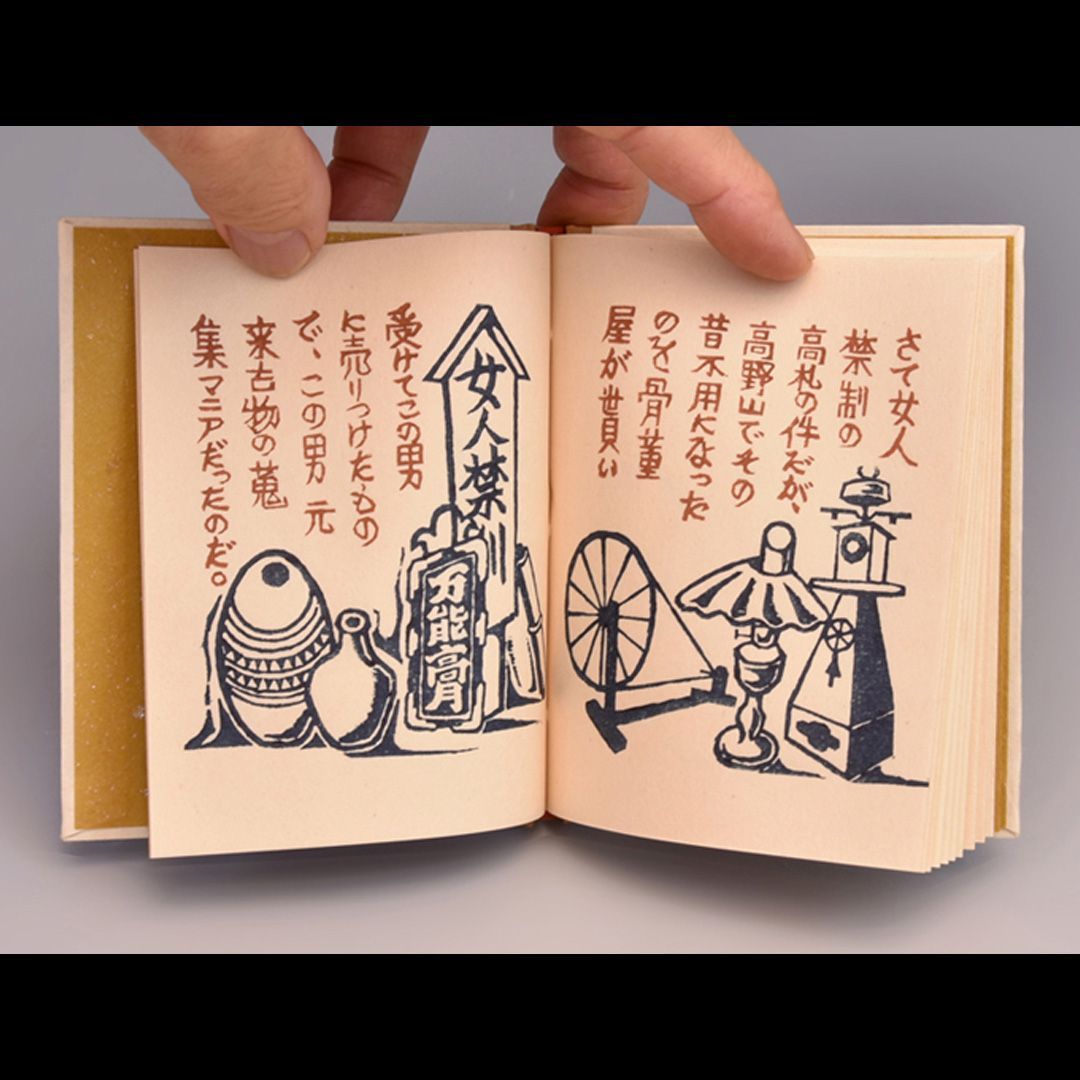 さて女人
禁制の
高札の件だが、
高野山でその
昔不用になった
のを骨董
屋が貰い
女人禁制
受けてこの男
に売りつけたもの
で、この男 元
来古物の蒐
集マニアだったのだ。
万能膏